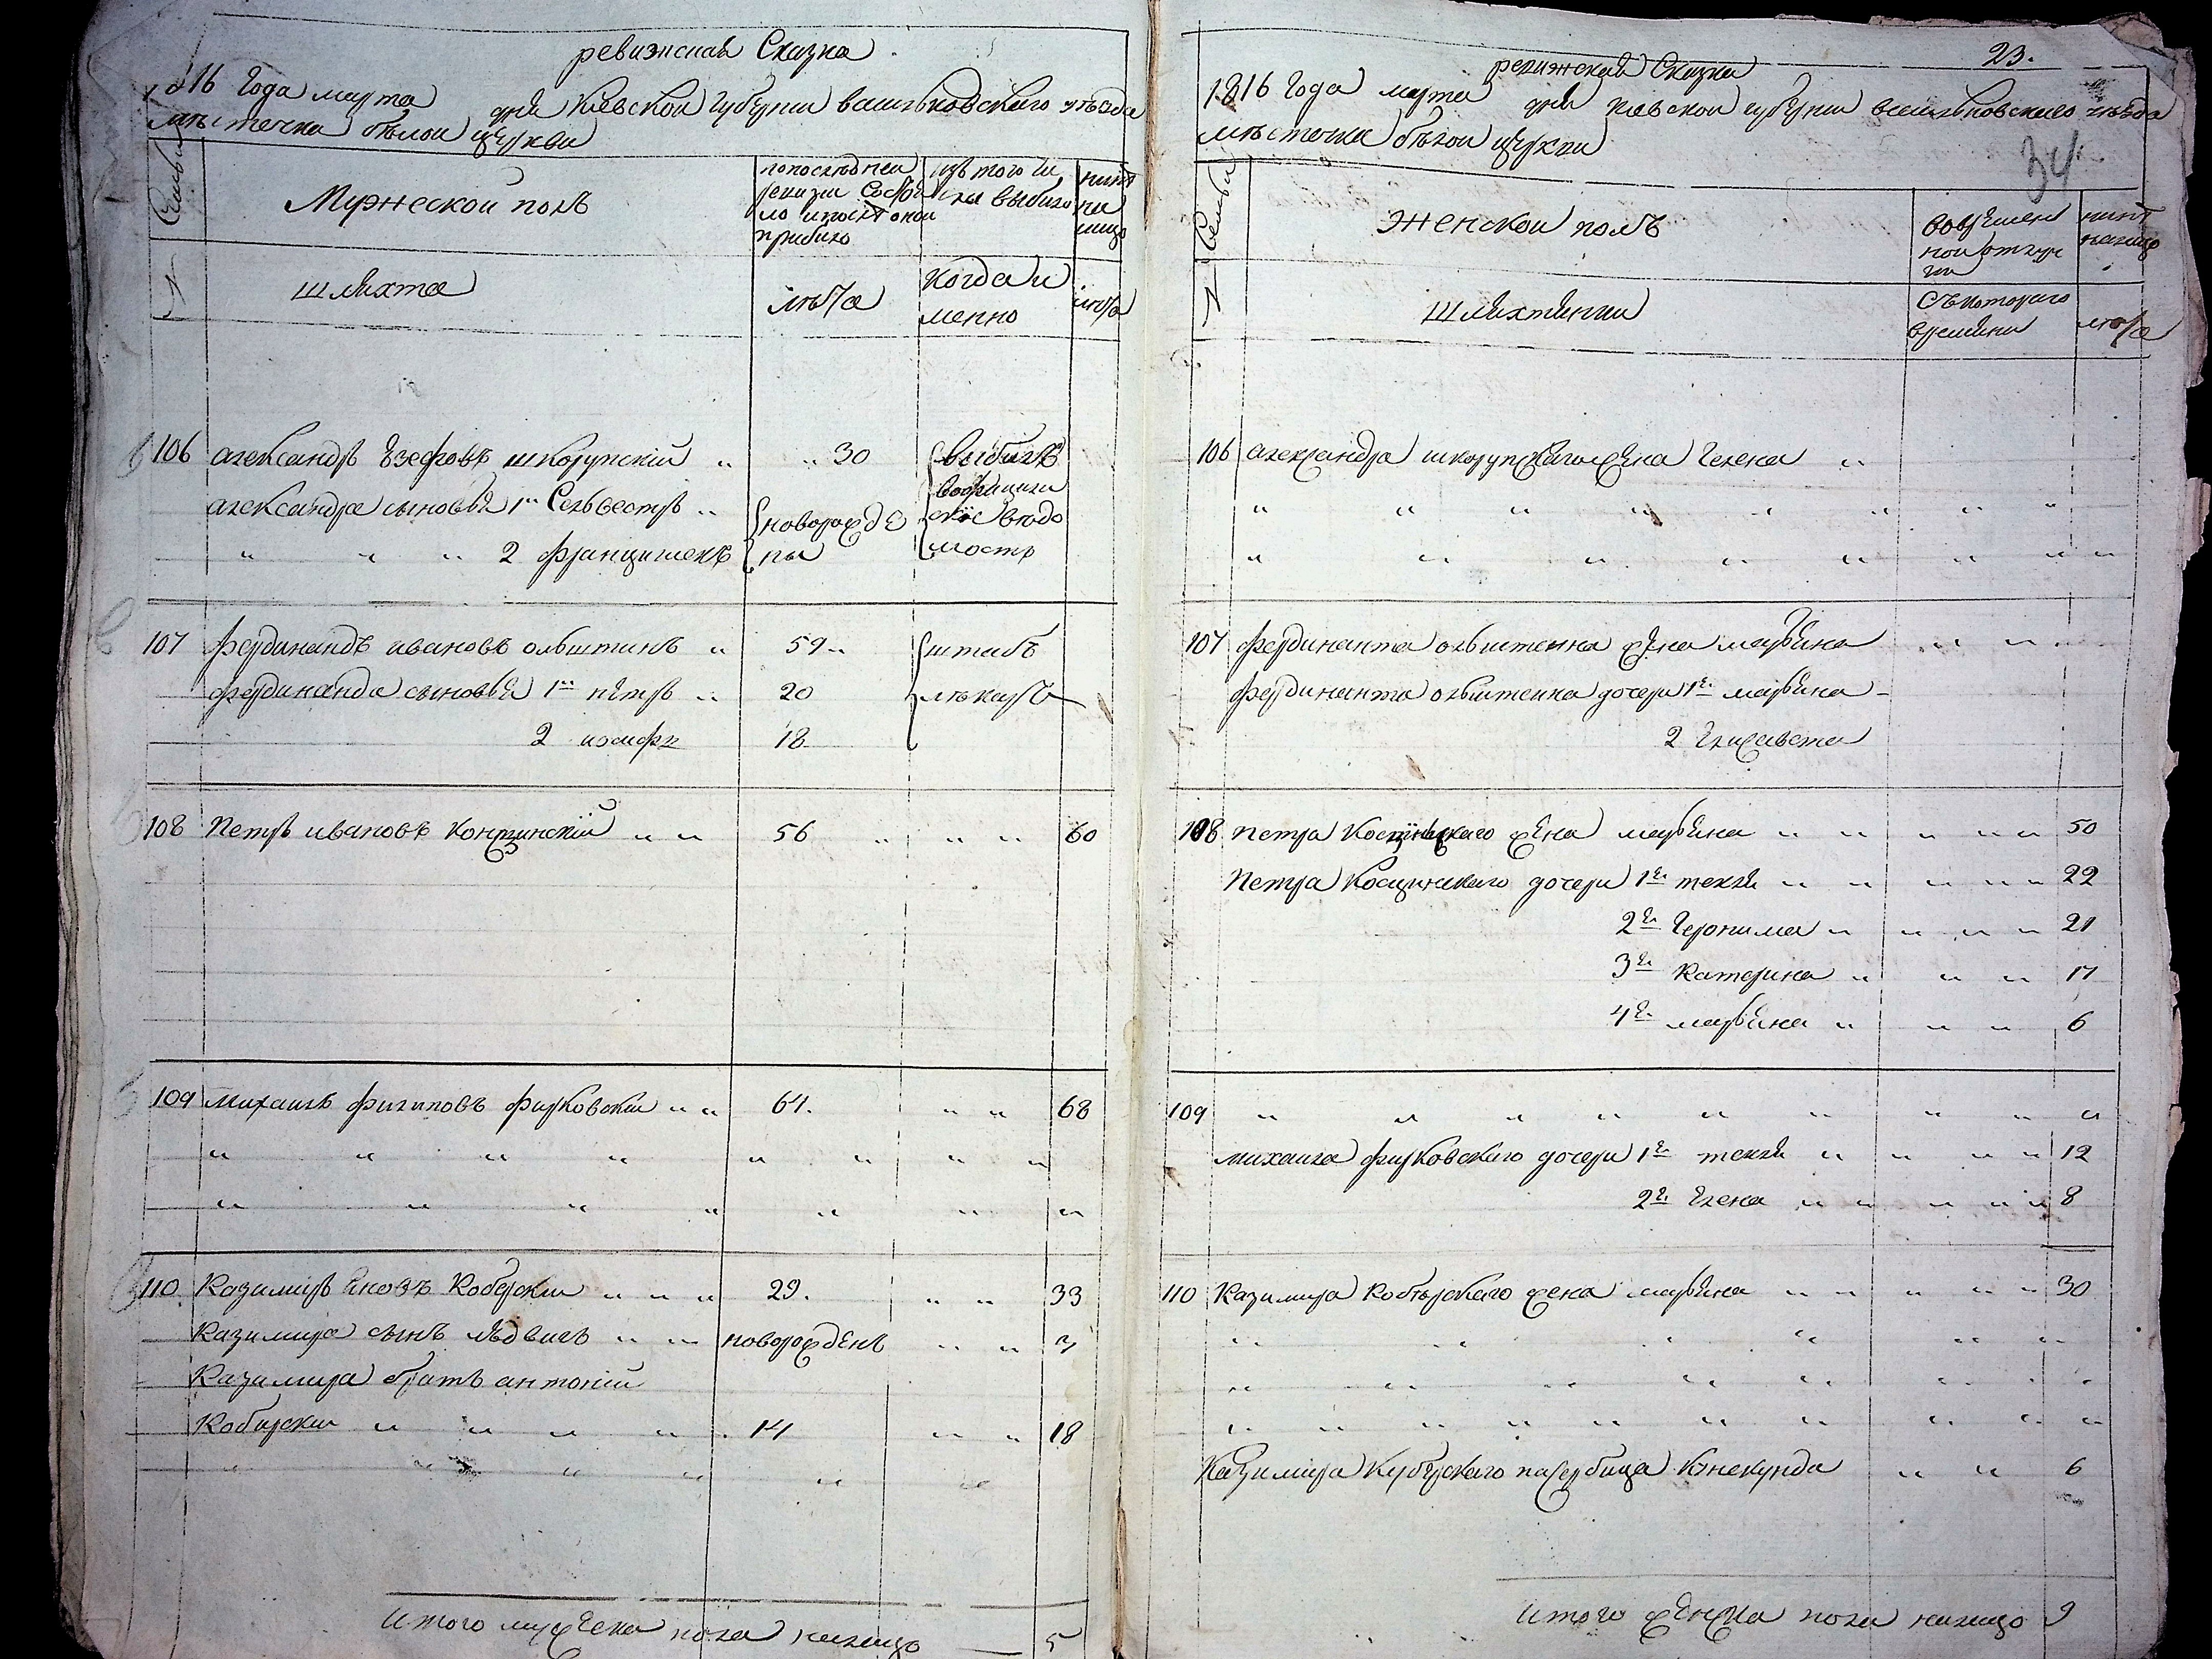 ревизская Сказка
1816 Года марта дня Киевской Губернии васильковского уезда
местечка белой церкви
Семьи
Мужеской полъ
попоследней
ревизии Состоя
ло ипосле оной
прибыло
изъ того чи
сла выбыло
ныне
на
лицо
№
шляхта
лета
когда и
менно
лета
106 александръ Езефовъ шкорупский " " 30 выбылъ
александра сыновья 1й Сельвестръ " новорожде
" " " 2 францишекъ ны
мость
107 фердинандъ ивановъ ольштинъ " 59 " штабъ
фердинанда сыновья 1й петръ " 20 лекаръ
2 иосифъ 18
108 Петръ ивановъ Концинский " " 56 " " " 60
109 михаилъ филиповъ фирковский " " 61. " " 68
" " " " " " " "
" " " " " " "
110 Казимиръ яновъ Коберский " " " 29. " " 33
Казимира сынъ людвигъ " " новорожденъ " " 3
Казимира братъ антоний
Кобирский " " " " 14 " " 18
" " " " " "
Итого мужеска пола налицо — 5
23.
ревизская Сказка
1816 Года марта дня киевской губернии васильковского уезда
местечка белой церкви
34
Семьи
женской полъ
вовремен
ной отлуч
ки
ныне
налицо
№
шляхтянки
Съкоторого
времени
лета
106 александра шкорупского жена Гелена "
" " " " " " " "
" " " " " " " "
107 фердинанта ольштенна жена марьяна " "
фердинанта ольштенна дочери 1я марьяна -
2 Елисавета
108 петра Косцинского жена марьяна " " " " " 50
Петра Косцинского дочери 1я текля " " " " " 22
2я Геронима " " " " 21
3я Катерина " " " 17
4я марьяна " " " 6
109 " " " " " " " " "
михаила фирковского дочери 1я текля " " " " 12
2я Елена " " " " " 8
110 Казимира Коберского жена марьяна " " " " 30
" " " " " "
" " " " " " " "
" " " " " " " " " "
Казимира Куберского пасербица Кунекунда " " 6
Итого женска пола налицо 9